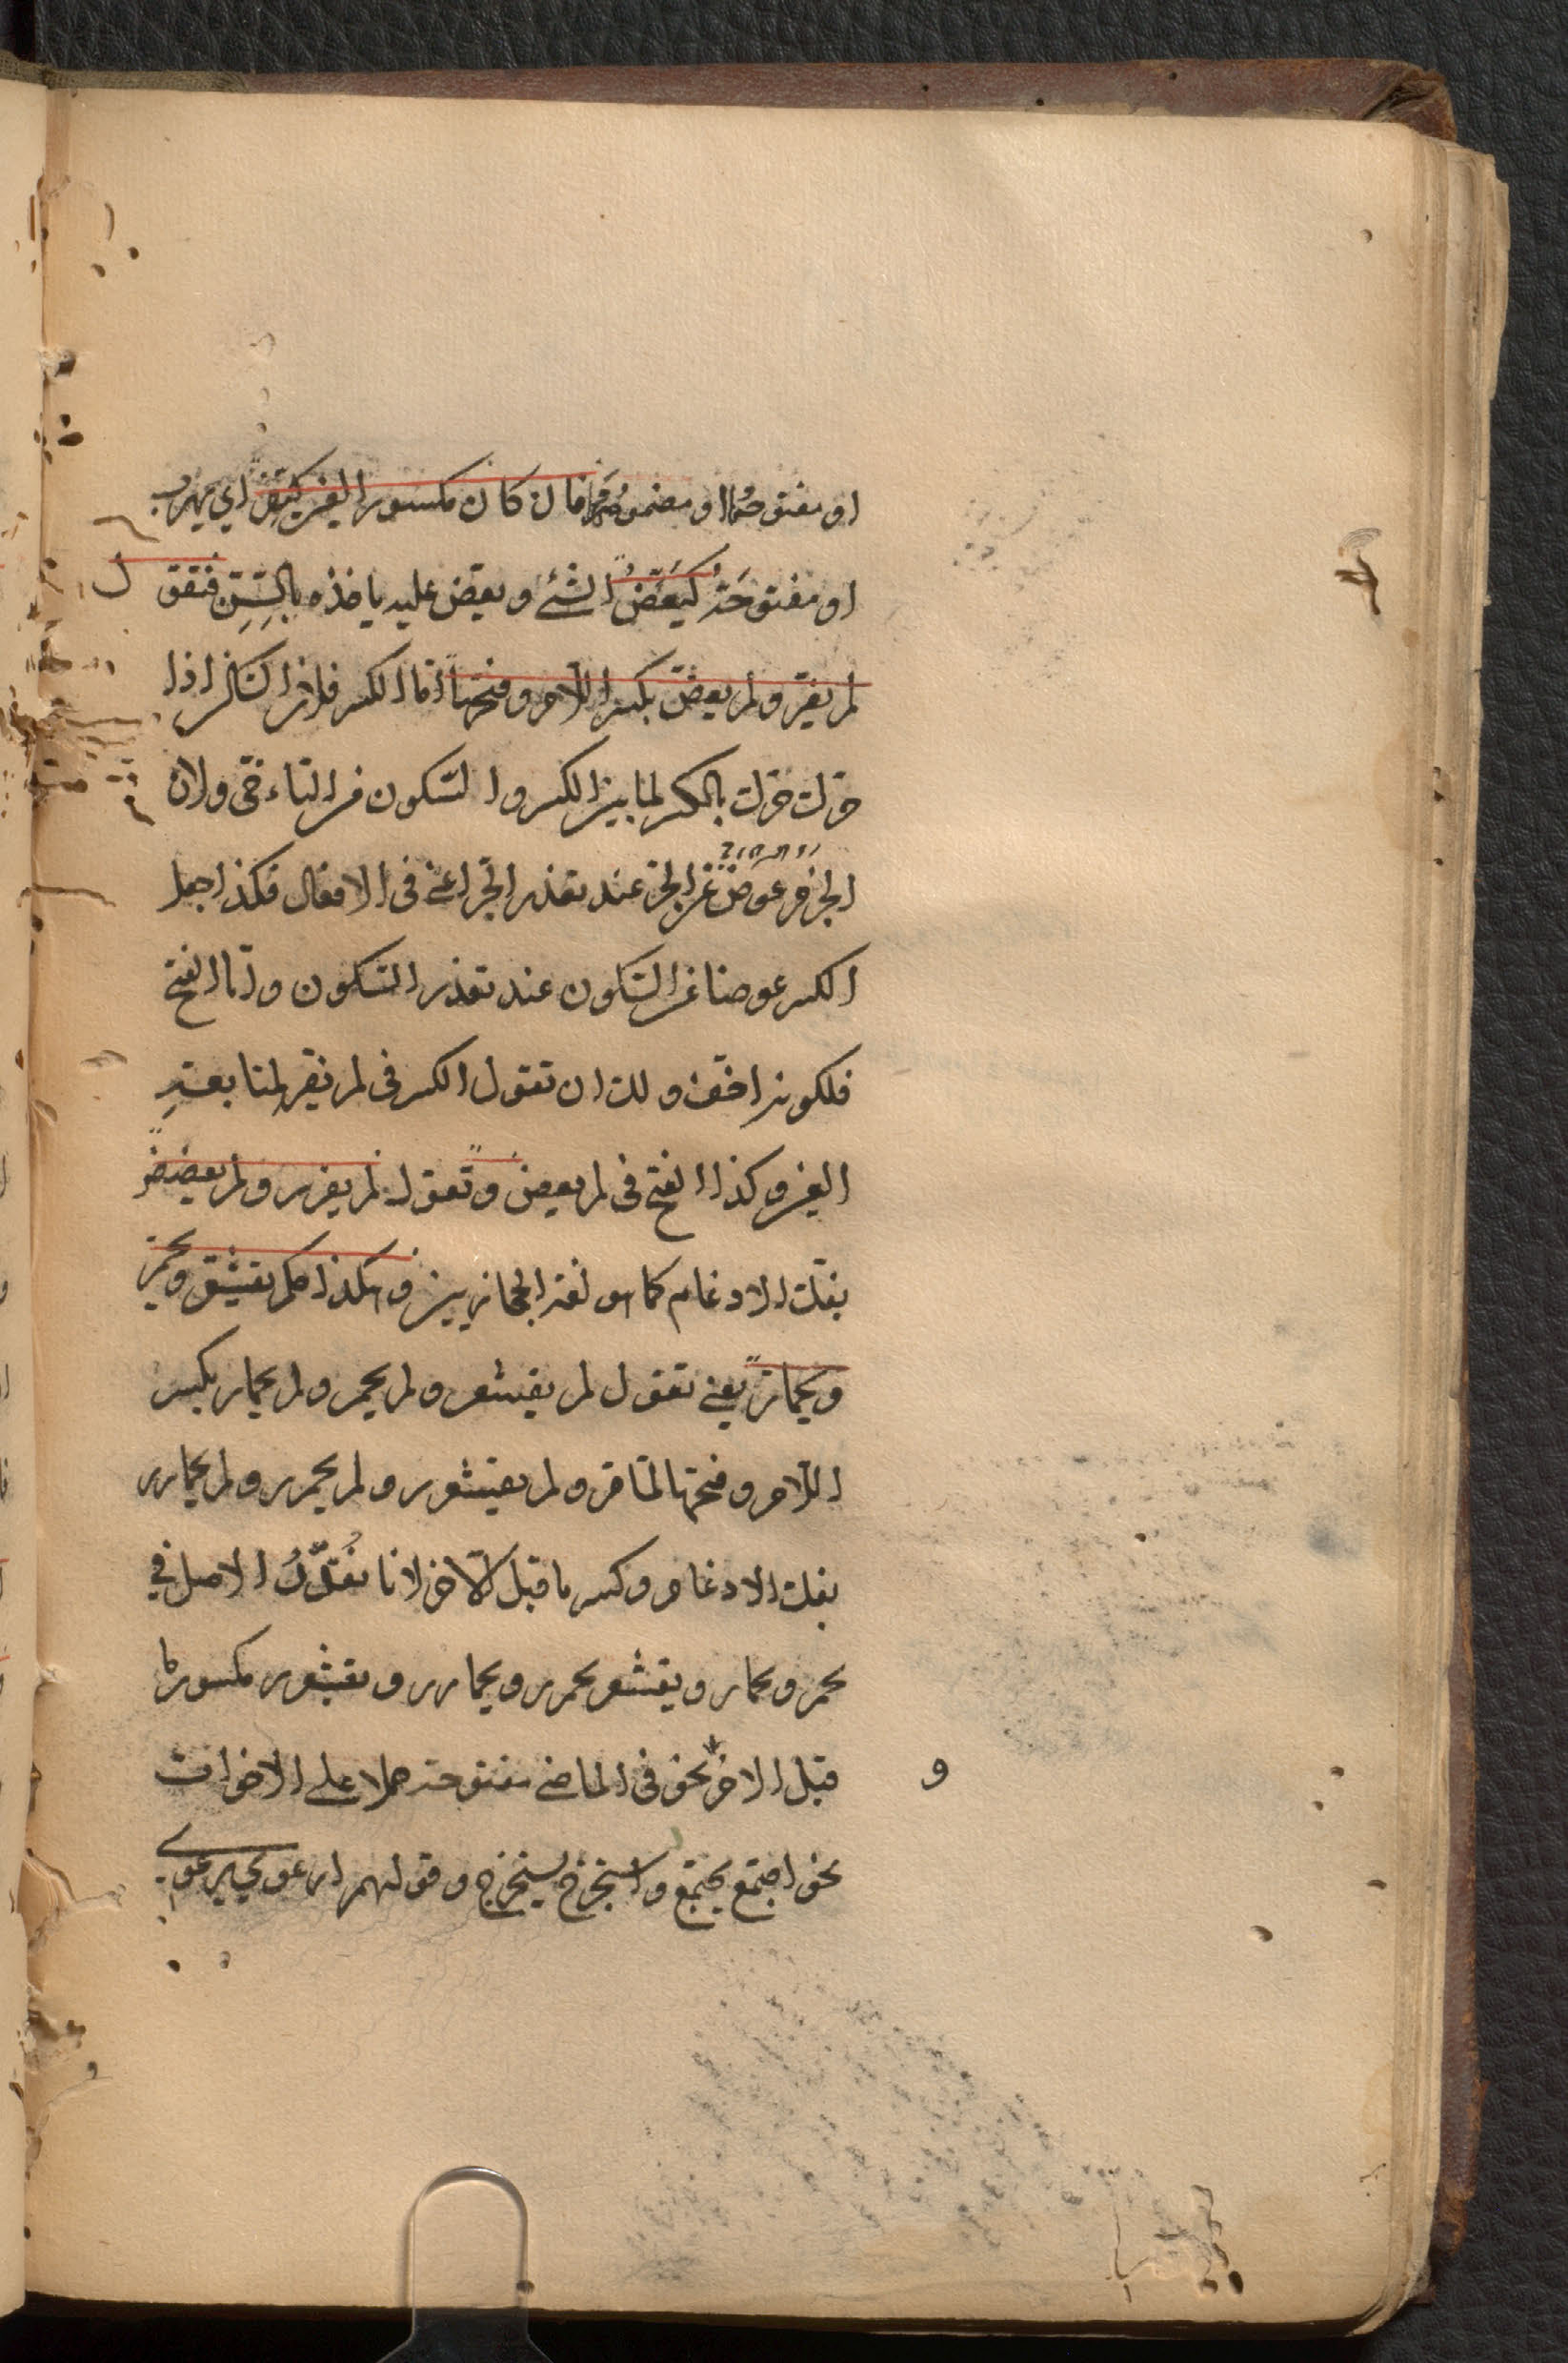 او مفتوحها او مضمومها فان كان مكسور العين كيفر اي يهرب
او مفتوحه كيَعَضُّ الشئ ويعض عليه ياخذه بالسِنِّ فتقول
لم يفرّ ولم يعضّ بكسر اللام وفتحها اما الكسر فلان الساكن اذا
حرّك حرّك بالكسر لما بين الكسر والسكون من التاءخى ولان
الجزم عوض عن الجر عند تعذر الجر اعنى فى الافعال فكذا جعل
الكسر عوضا عن السكون عند تعذر السكون واما الفتح
فلكونه اخف ولك ان تقول الكسر فى لم يفر لمتابعة
العين وكذا الفتح فى لم يعض وتقول لم يفرر ولم يعضض
بفك الادغام كما هو لغة الحجازيين وهكذا حكم يقشعر ويحمر
ويحمارّ يعنى تقول لم يقشعر ولم يحمر ولم يحمار بكسر
اللام وفتحها لما مر ولم يقشعرر ولم يحمرر ولم يحمارر
بفك الادغام وكسر ما قبل الآخر لانا نُقدّرُ الاصل فى
يحمر ويحمار ويقشعر يحمرر ويحمارر ويقشعرر مكسور ما
قبل الاخر نحو فى الماضى مفتوحه حملا على الاخوات
نحو اجتمع يجتمع واستخرج يستخرج وقولهم ارعوى يرعوى
و